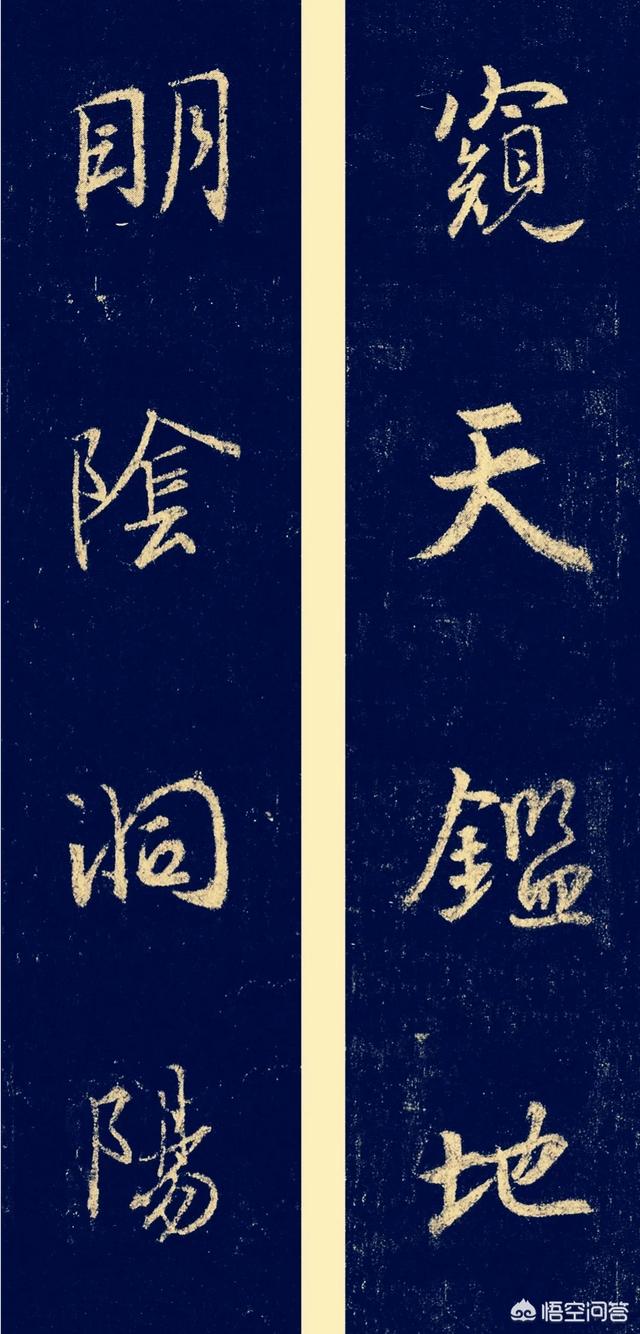 窺天鑑地
明陰洞陽
悟空问答